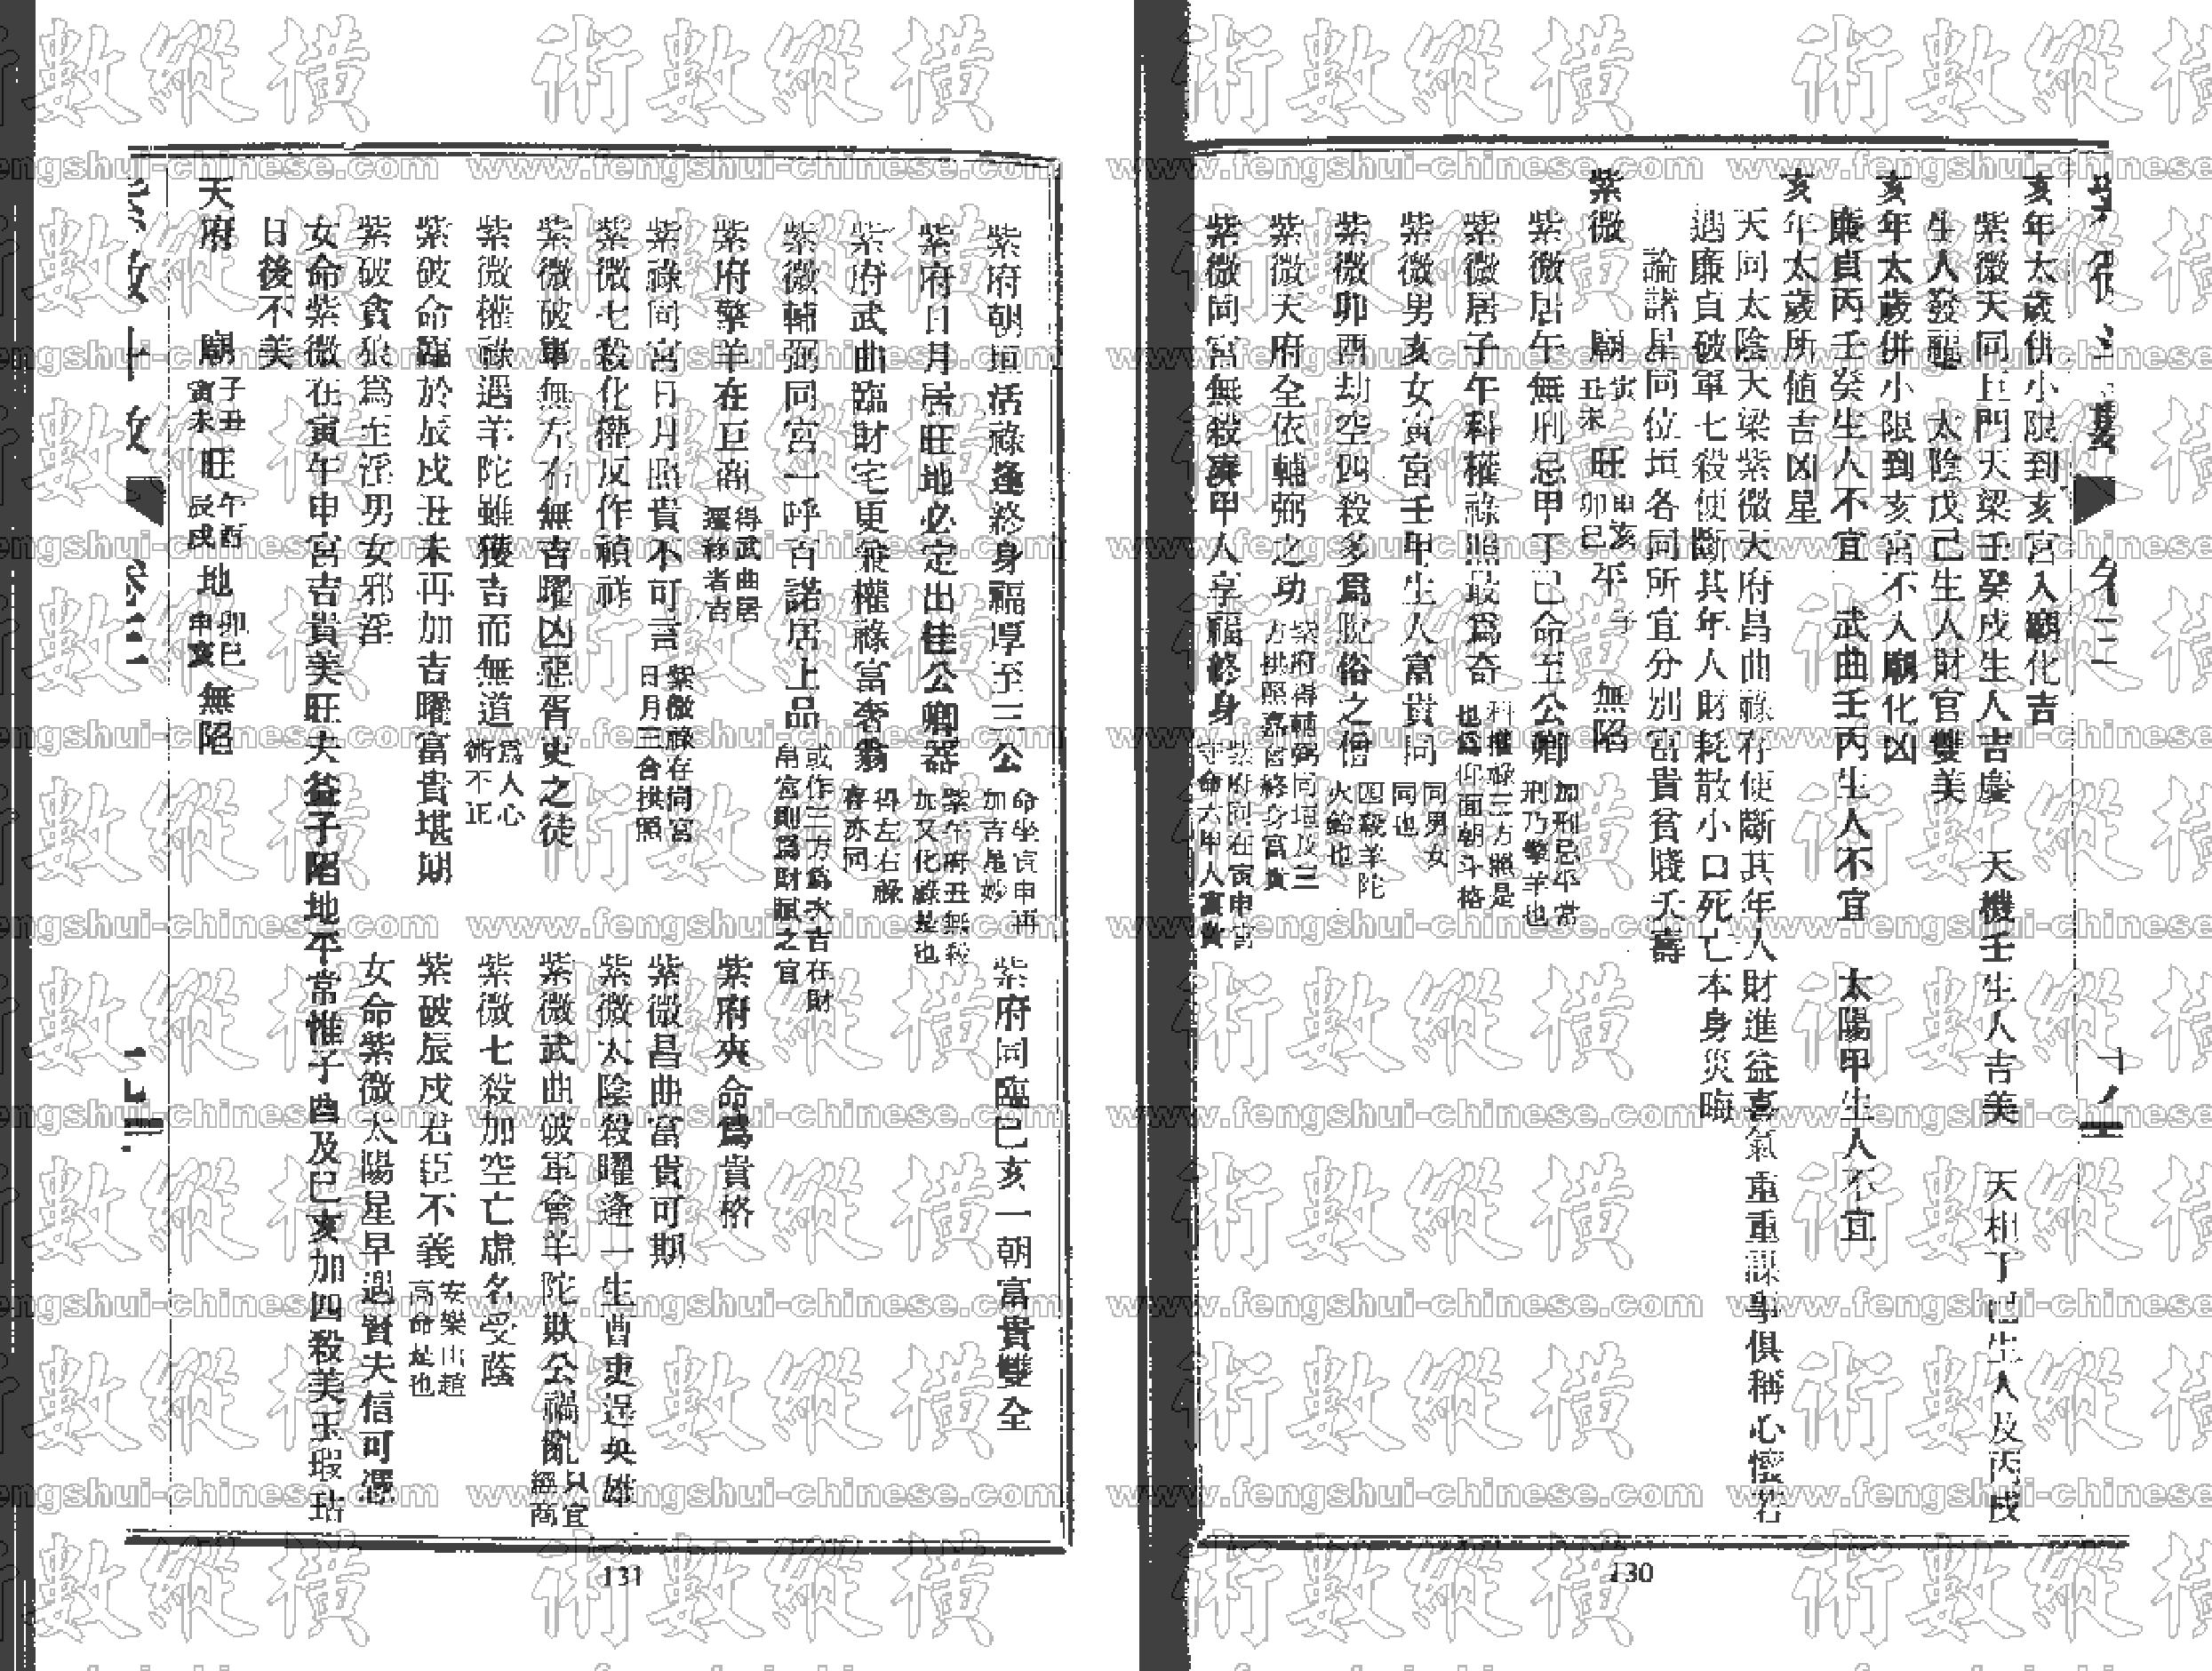 亥年太歲併小限到亥宮入廟化吉
紫微天同巨門天梁壬癸戊生人吉慶　天機壬生人吉美　天相丁己生人及丙戌
生人發福　太陰戊己生人財官雙美
亥年太歲併小限到亥宮不入廟化凶
廉貞丙壬癸生人不宜　武曲壬丙生人不宜　太陽甲生人不宜
亥年太歲所值吉凶星
天同太陰天梁紫微天府昌曲祿存便斷其年人財進益喜氣重重謀事俱稱心懷若
遇廉貞破軍七殺便斷其年人財耗散小口死亡本身災晦
論諸星同位垣各同所宜分別富貴貧賤夭壽
紫微　廟 寅丑未 旺 申亥卯巳 平 子 無陷
紫微居午無刑忌甲丁己命至公卿 加刑忌平常刑乃擎羊也
紫微居子午科權祿照最為奇 科權祿三方照是也為仰面朝斗格
紫微男亥女寅宮壬甲生人富貴同 同男女同也
紫微卯酉劫空四殺多為脫俗之僧 四殺羊陀火鈴也
紫微天府全依輔弼之功 紫府得輔弼同垣及三方拱照嘉會終身富貴
紫微同宮無殺湊甲人享福終身 紫府同在寅申宮守命六甲人富貴
紫府朝垣活祿逢終身福厚至三公 命坐寅申再加吉尾妙　紫府同臨巳亥一朝富貴雙全
紫府日月居旺地必定出佳公卿器 紫午府丑無殺加又化祿是也
紫府武曲臨財宅更兼權祿富奢翁 得左右祿存亦同
紫微輔弼同宮一呼百諾居上品 或作三方為次吉在財帛宮則為財賦之官
紫府擎羊在巨商 得武曲居遷移者吉　紫府夾命為貴格
紫祿同宮日月照貴不可言 紫微祿存同宮日月三合拱照　紫微昌曲富貴可期
紫微七殺化權反作禎祥　紫微太陰殺曜逢一生曹吏逞英雄
紫微破軍無左右無吉曜凶惡胥吏之徒　紫微武曲破軍會羊陀欺公禍亂 只宜經商
紫微權祿遇羊陀雖獲吉而無道 為人心術不正　紫微七殺加空亡虛名受蔭
紫破命臨於辰戌丑未再加吉曜富貴堪期　紫破辰戌君臣不義 安樂山趙高命是也
紫破貪狼為至淫男女邪淫　女命紫微太陽星早遇賢夫信可憑
女命紫微在寅午申宮吉貴美旺夫益子陷地平常惟子酉及巳亥加四殺美玉瑕玷
日後不美
天府　廟 子丑寅未 旺 午酉辰戌 地 卯巳申亥 無陷
130
131
術數縱橫
www.fengshui-chinese.com